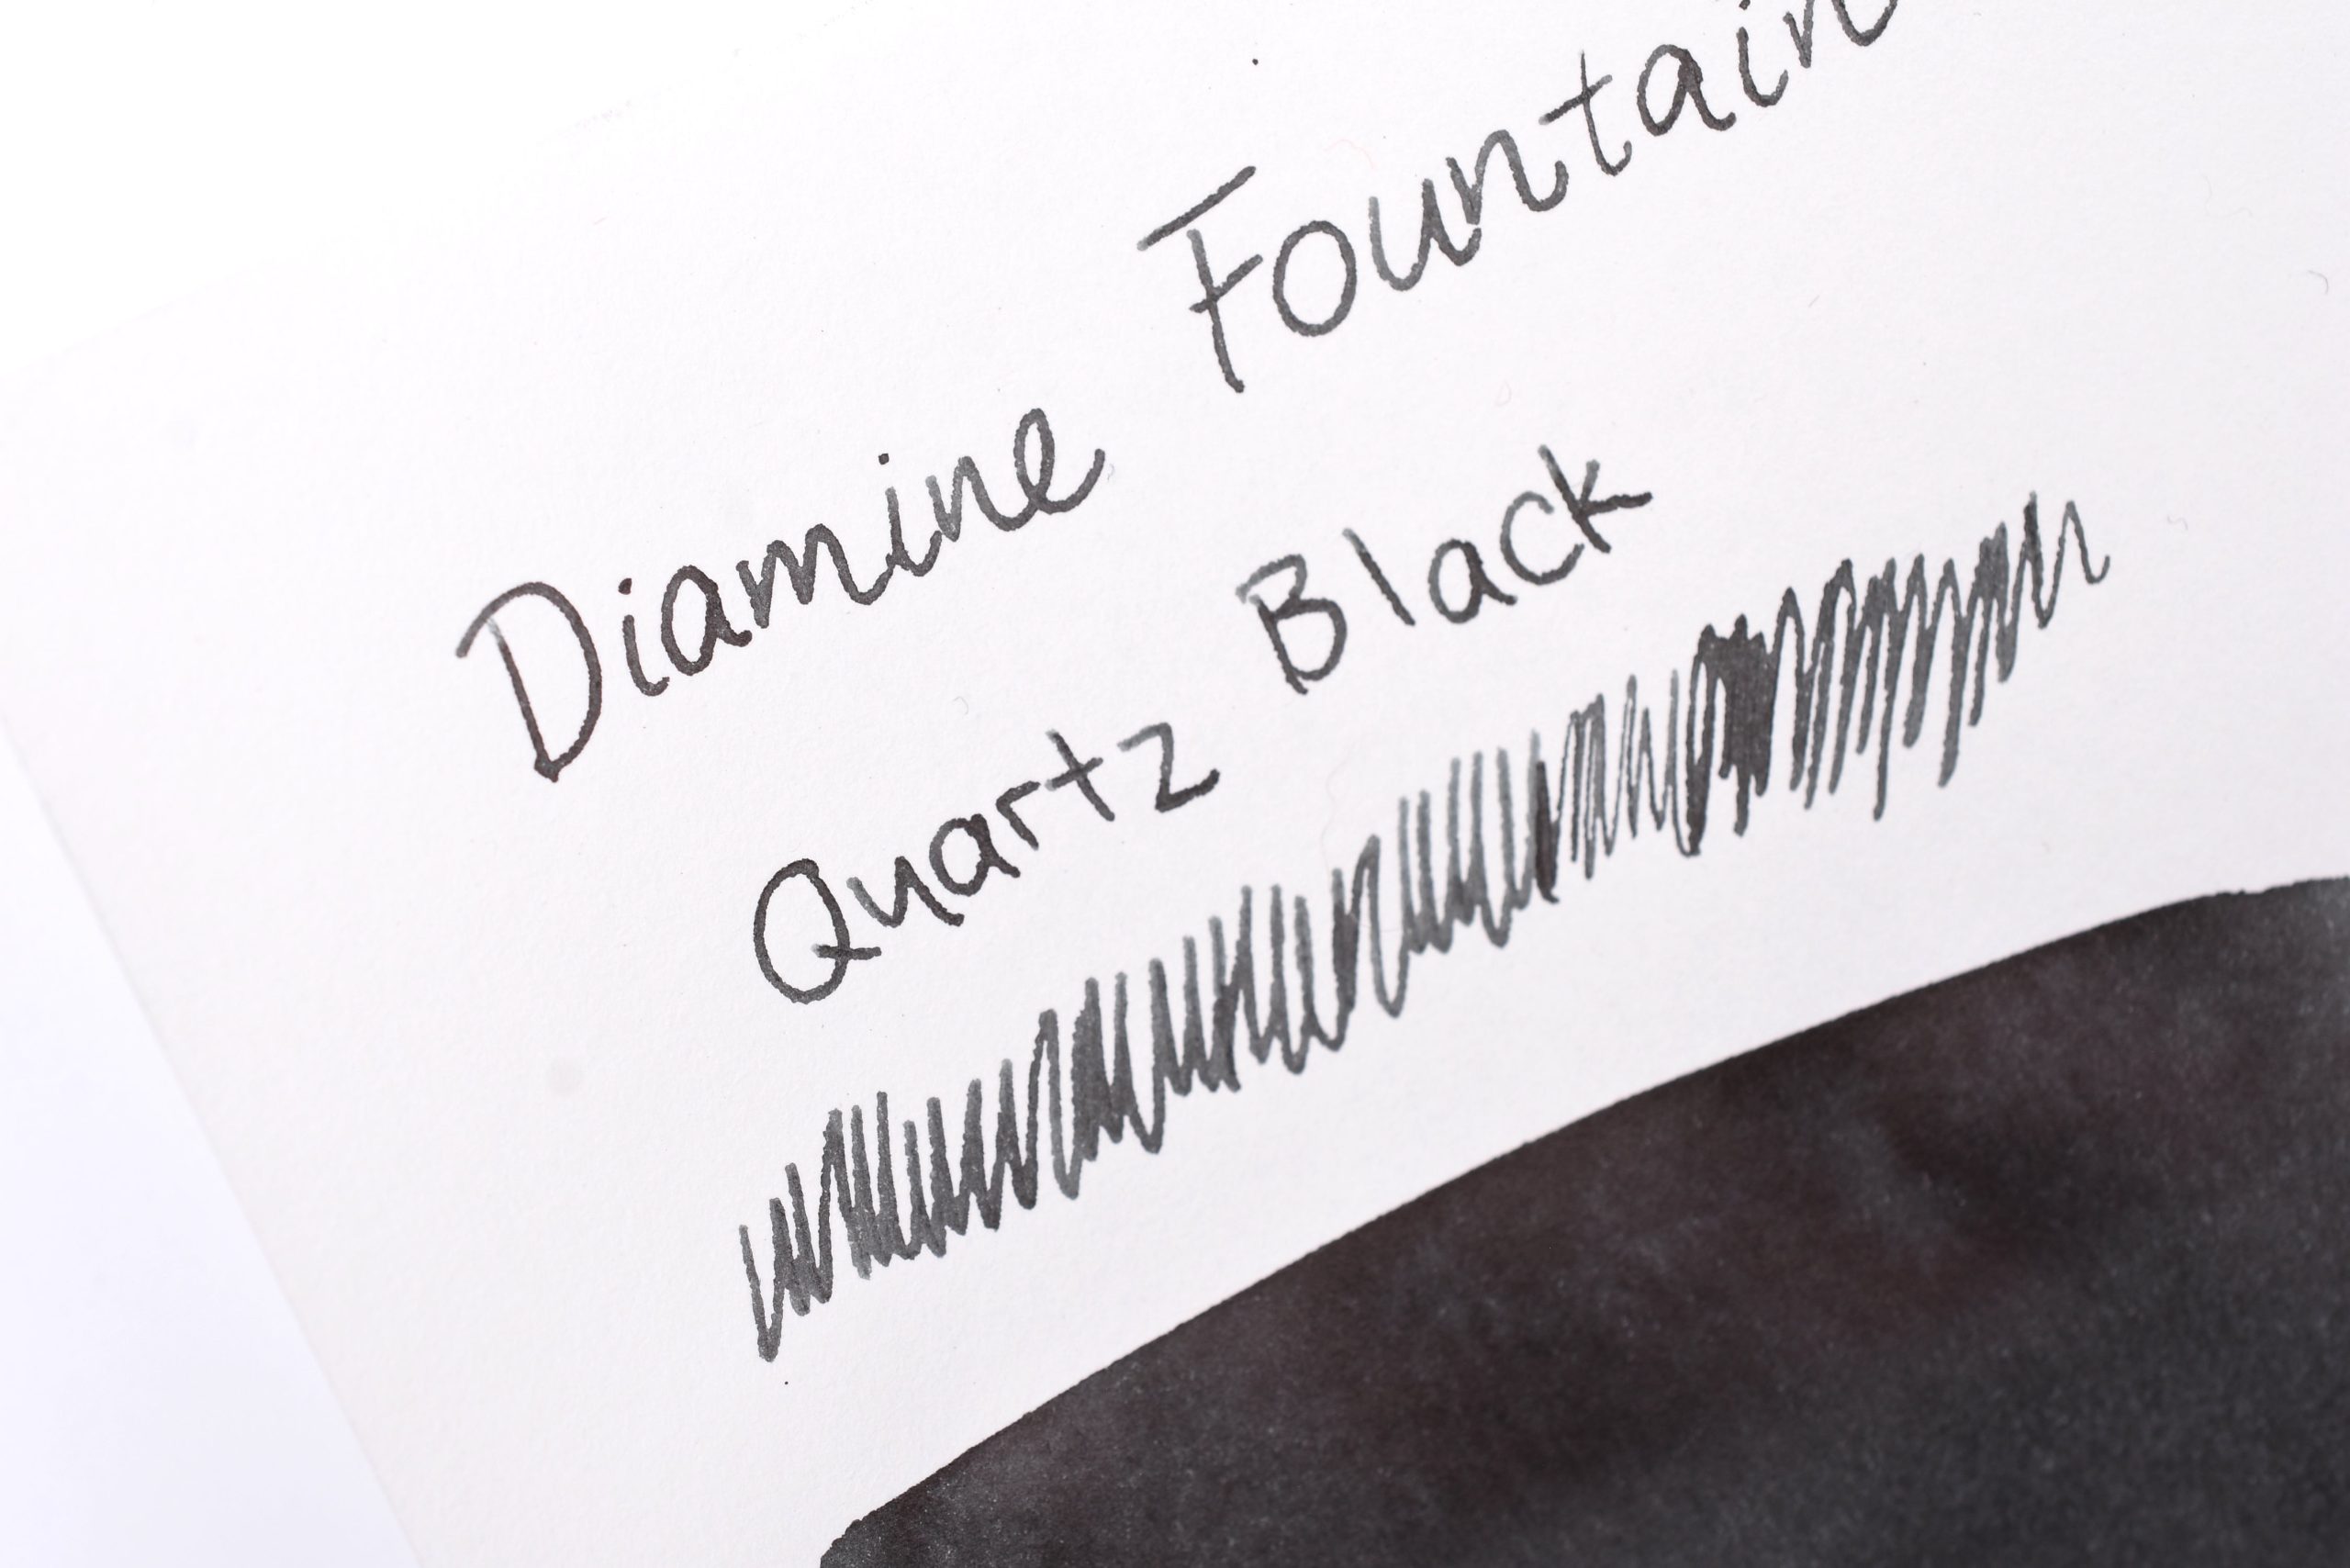 Diamine Fountain
Quartz Black